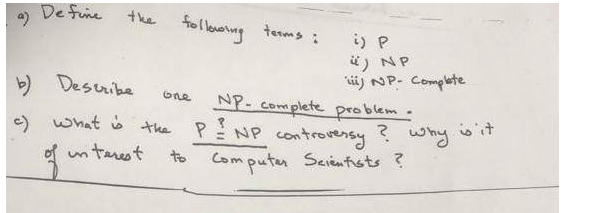 a) Define the following terms : i) P
ii) NP
iii) NP-Complete
b) Describe one NP-complete problem.
c) what is the P ≟ NP controversy ? why is it
of interest to Computer Scientists ?